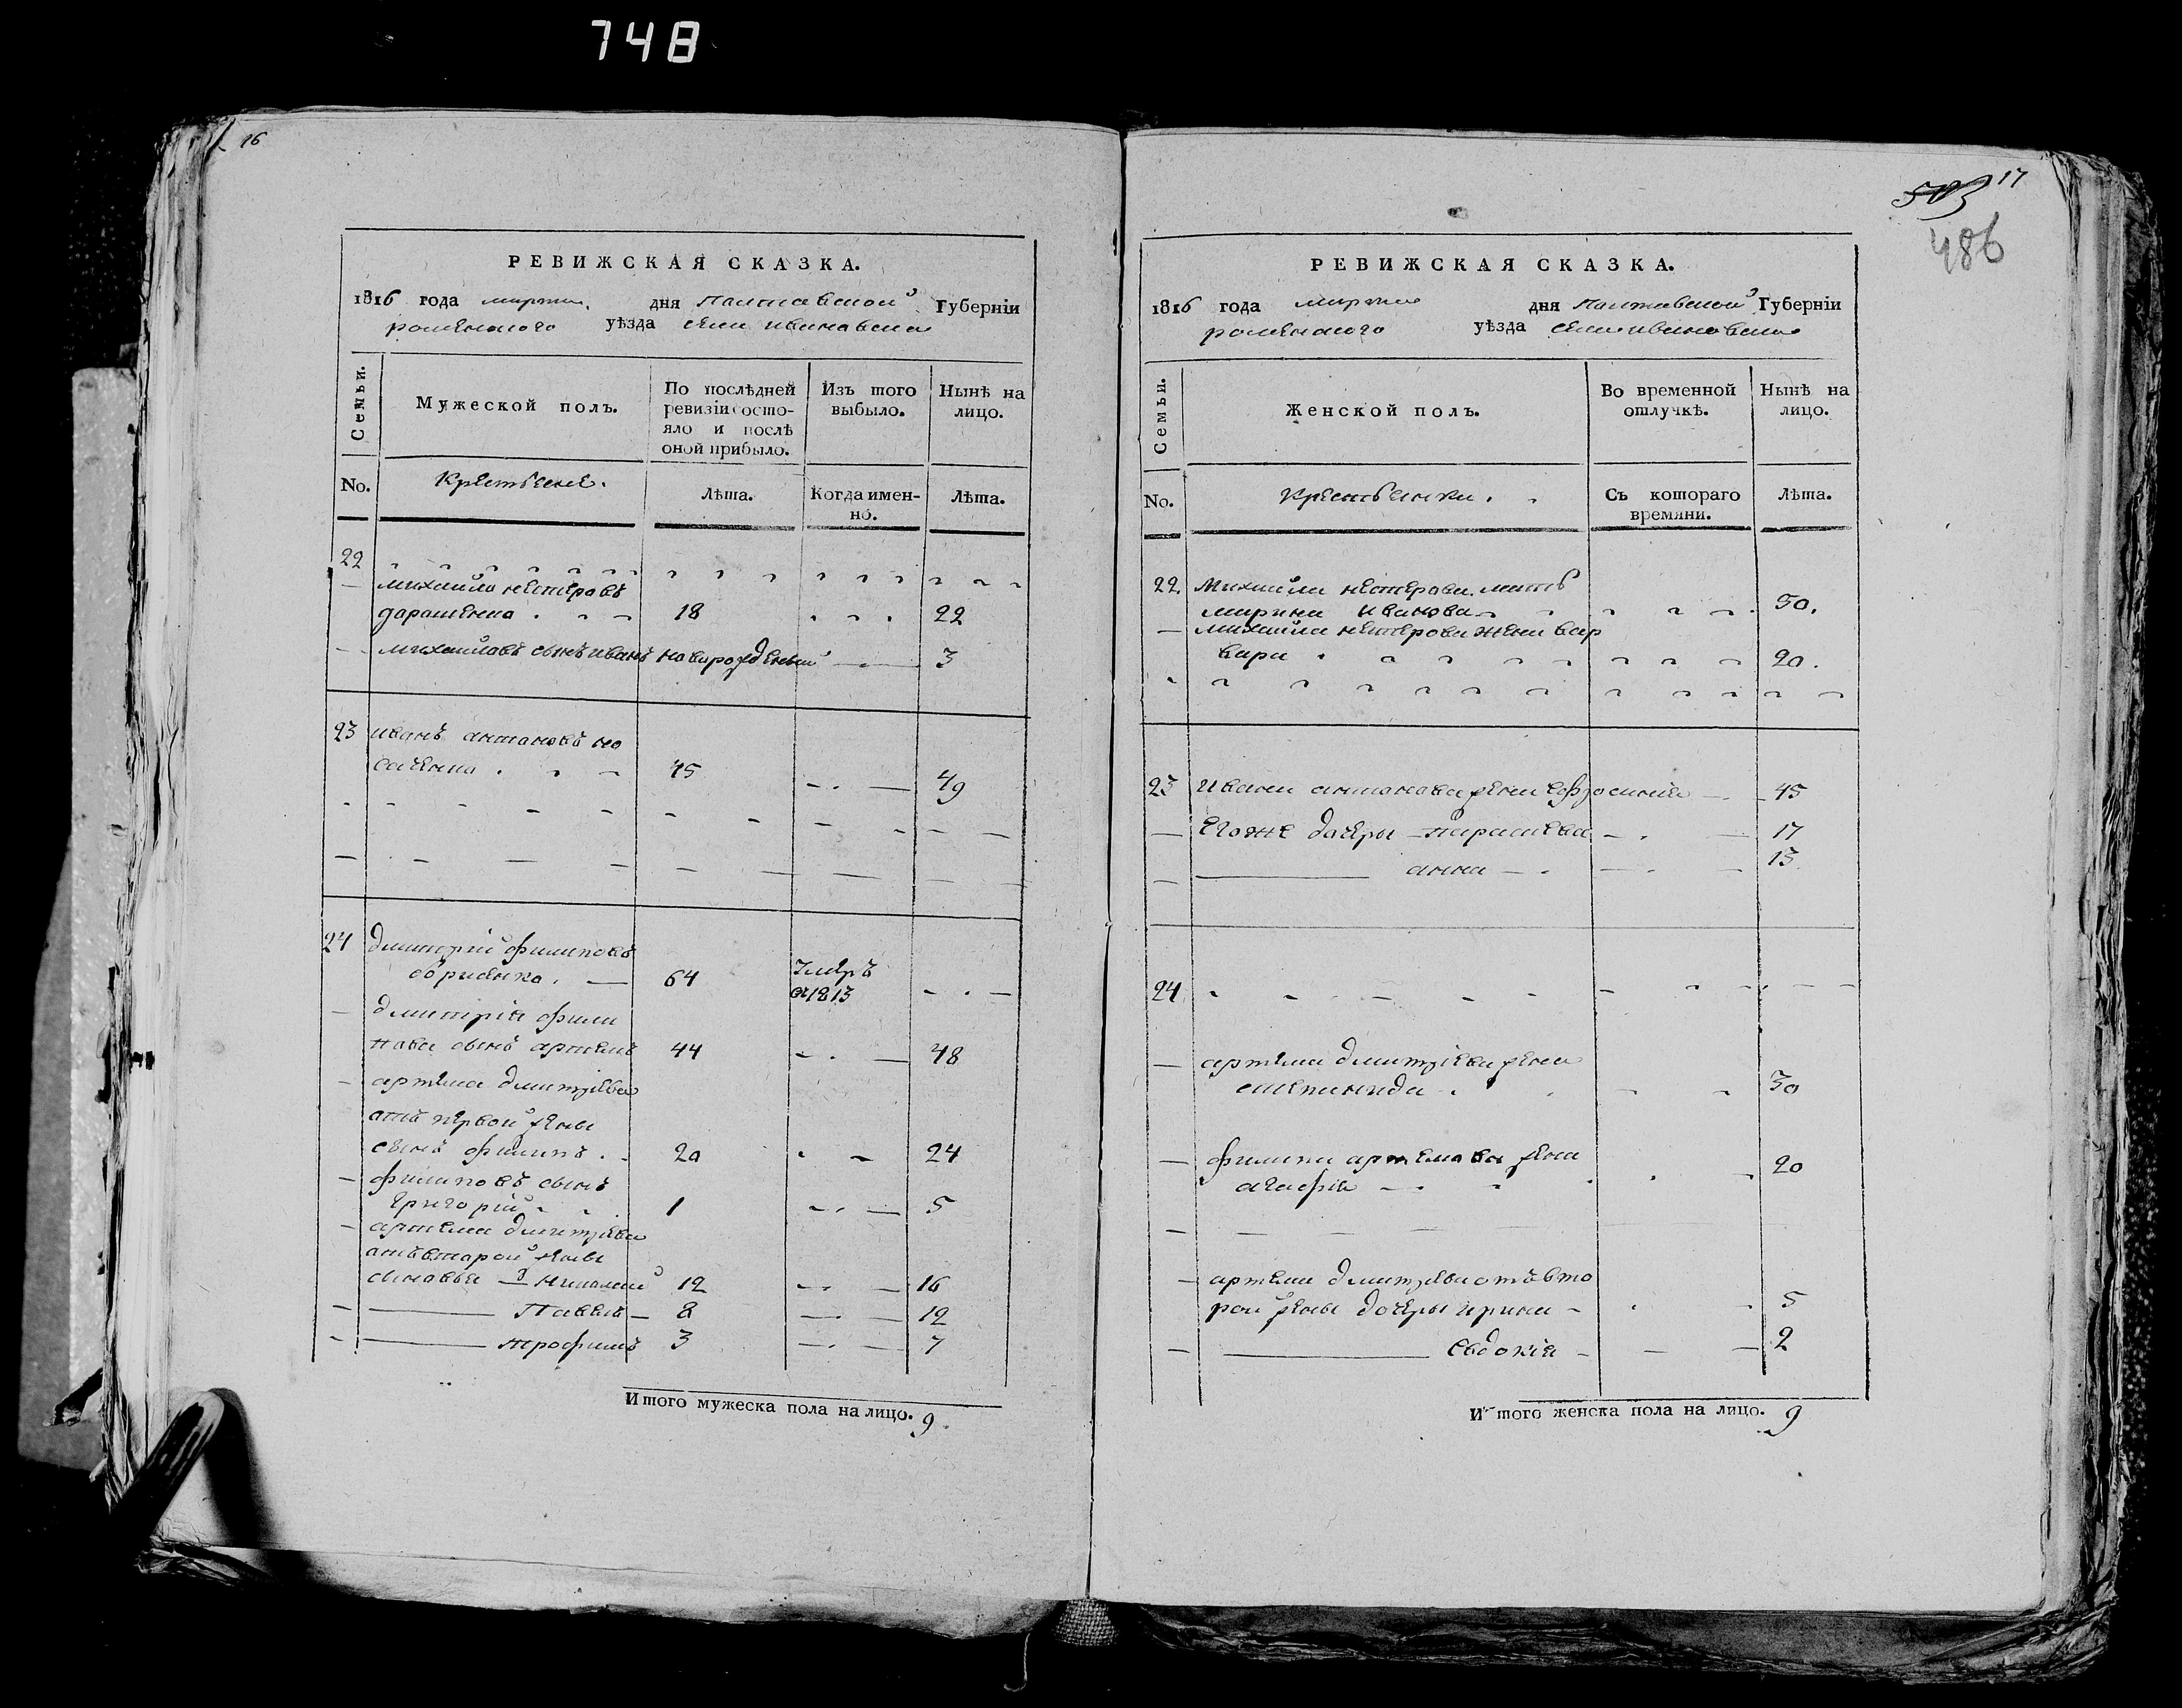 748
16
РЕВИЖСКАЯ СКАЗКА.
1816 года марта дня Полтавской Губерніи
роменского уѣзда села ивановска
Семьи.
Мужеской полъ.
По послѣдней ревизіи состояло и послѣ оной прибыло.
Изъ того выбыло.
Нынѣ на лицо.
No.
Крестьяне.
Лѣта.
Когда именно.
Лѣта.
22
— михайло нестеровъ
дарошенко 18 22
— михайловъ сынъ иванъ новорожденый — 3
23 иванъ антановъ но
саченко 45 — 49
24 дмитрій филиповъ
64 умеръ
в 1813
— дмитрія фили
пова сынъ артемъ 44 — 48
— артема дмитріева
атъ первой жены
сынъ филипъ 20 24
— филиповъ сынъ
григорій 1 — 5
— артема дмитріева
атъ второй жены
сыновья 1й николай 12 — 16
— Павелъ 8 — 12
— трофимъ 3 — 7
Итого мужеска пола на лицо. 9.
503 17
486
РЕВИЖСКАЯ СКАЗКА.
1816 года марта дня Полтавской Губерніи
роменского уѣзда села ивановска
Семьи.
Женской полъ.
Во временной отлучкѣ.
Нынѣ на лицо.
No.
Крестьянки.
Съ котораго времяни.
Лѣта.
22. Михайла нестерова мать
марина Иванова 50.
— михайла нестерова жена вар
вара 20.
23 Ивана антанова жена ефросинія — 45
— егоже дочеры — параскева — 17
— анна — 13
24
— артема дмитріева жена
степанида 30
— филипа артемова жена
агафія 20
— артема дмитріева отъ вто
рой жены дочеры ирина — 5
— Евдокія — 2
Итого женска пола на лицо. 9